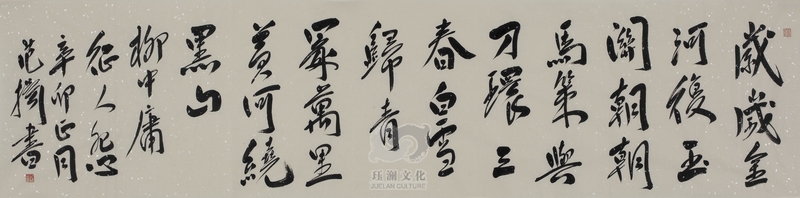 歲歲金
河復玉
關朝朝
馬策與
刀環三
春白雪
歸青
冢萬里
黃河繞
黑山
柳中庸
征人怨
辛卯正月
范書
珏瀾文化
JUELAN CULTURE